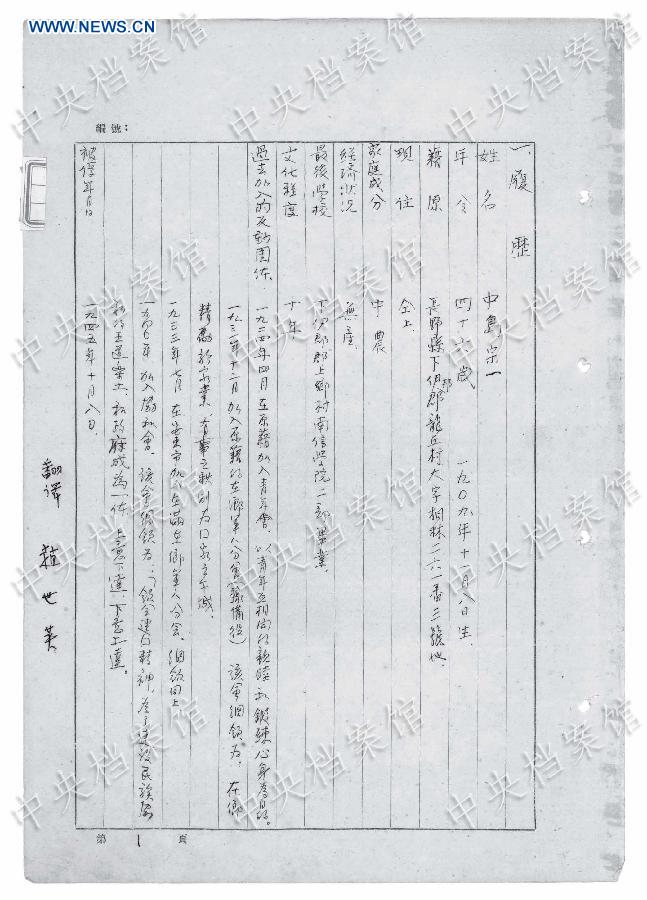 WWW.NEWS.CN
中央档案馆
編號：
一、履歷
姓名 中島宗一
年令 四十六歲 一九〇九年十一月八日生.
籍原 長野縣下伊那郡龍丘村大字桐林二六一番三號地.
現住 仝上.
家庭成分 中農
經济狀况 無産.
最後学校 下伊那郡上鄉村南信学院二部畢業.
文化程度 十年
過去加入的反動团体. 一九二四年四月在原籍加入青年會. 以青年互相间的親睦和鍛練心身為目的。
一九三一年十二月加入原籍的在鄉軍人分會（豫備役）該會綱領為：在鄉
精勵於家業，有事之秋則为国家之干城.
一九三三年七月在安東市加入在滿在鄉軍人分会. 綱領同上
一九四〇年加入協和會. 該會綱領为：「領会建国精神，为了建设民族協
和的王道楽土，和政府成為一体，上意下達，下意上達。
被俘年月日 一九四五年十月八日
翻譯 趙世英
第 1 頁